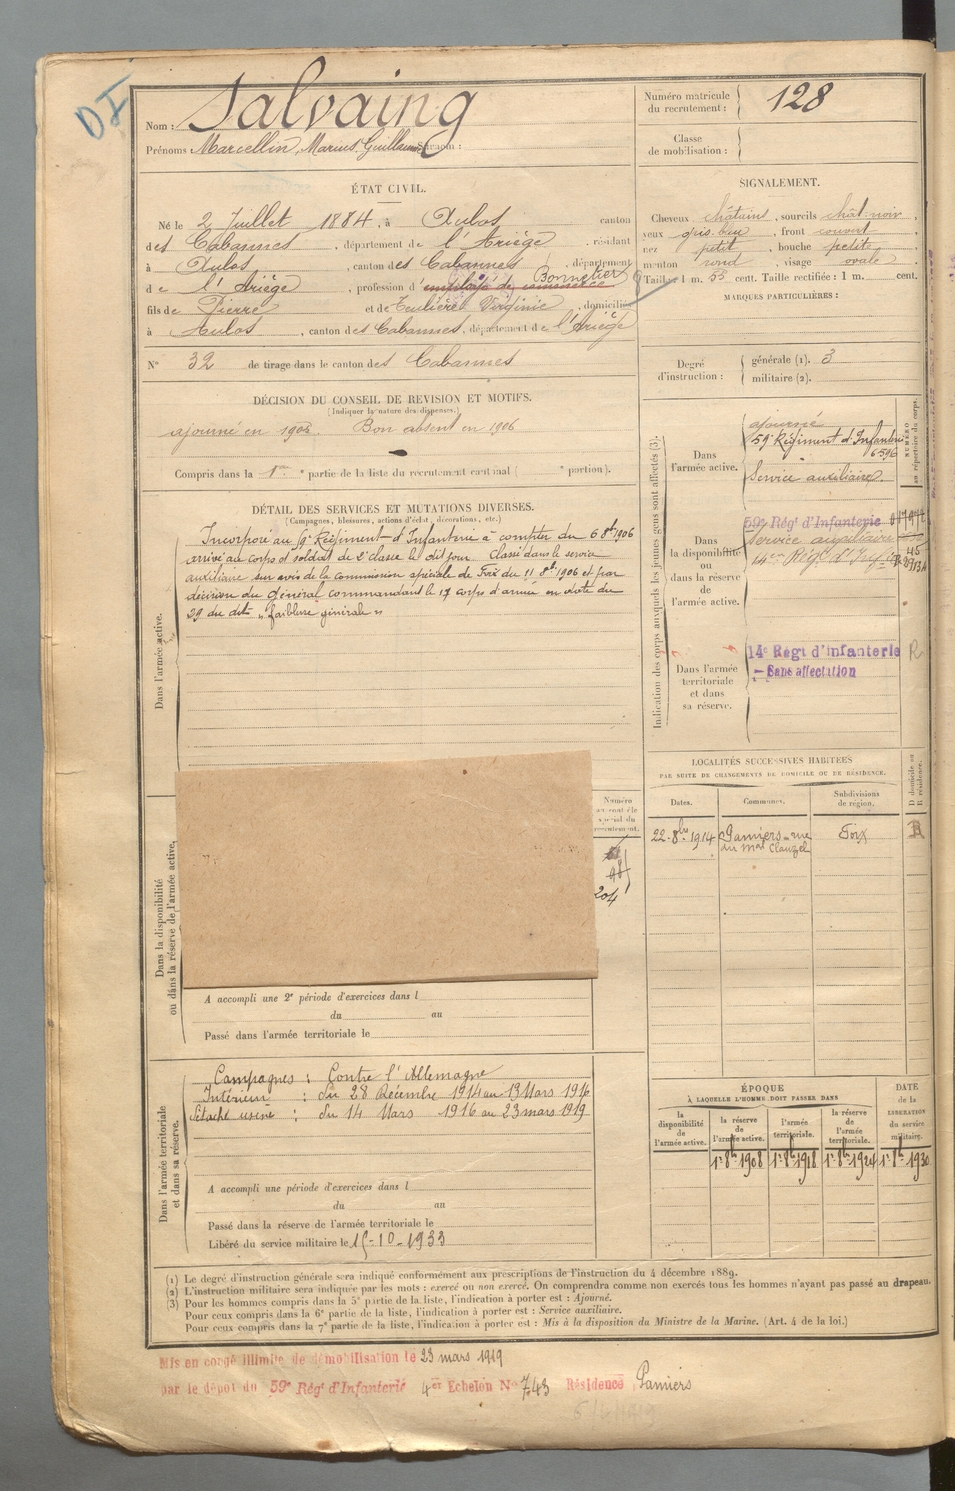 DI
Nom : Salvaing
Prénoms : Marcellin, Marius, Guillaume Surnom :
Numéro matricule du recrutement : 128
Classe de mobilisation :
ÉTAT CIVIL.
Né le 2 Juillet 1884, à Aulos canton
des Cabannes, département de l'Ariège, résidant
à Aulos, canton des Cabannes, département
de l'Ariège, profession d'employé de commerce Bonnetier
fils de Pierre et de Teulière Virginie, domiciliés
à Aulos, canton des Cabannes, département de l'Ariège
N° 32 de tirage dans le canton des Cabannes
SIGNALEMENT.
Cheveux châtains, sourcils chât-noir,
yeux gris-bleu, front couvert,
nez petit, bouche petite,
menton rond, visage ovale.
Taille : 1 m. 55 cent. Taille rectifiée : 1 m. cent.
MARQUES PARTICULIÈRES :
Degré d'instruction : générale (1). 3
militaire (2).
DÉCISION DU CONSEIL DE REVISION ET MOTIFS.
(Indiquer la nature des dispenses.)
ajourné en 1905. Bon absent en 1906
Compris dans la 1re partie de la liste du recrutement cantonal ( e portion).
DÉTAIL DES SERVICES ET MUTATIONS DIVERSES.
(Campagnes, blessures, actions d'éclat, décorations, etc.)
Dans l'armée active.
Incorporé au 59e Régiment d'Infanterie à compter du 6 8bre 1906
arrivé au corps et soldat de 2e classe le dit jour. Classé dans le service
auxiliaire sur avis de la commission spéciale de Foix du 11 8bre 1906 et par
décision du Général commandant le 17 corps d'armée en date du
29 du dit "faiblesse générale"
Indication des corps auxquels les jeunes gens sont affectés (3).
NUMÉRO au répertoire du corps.
Dans l'armée active.
ajourné
59e Régiment d'Infanterie
6596
Service auxiliaire.
Dans la disponibilité ou dans la réserve de l'armée active.
59e Rég' d'Infanterie
Service auxiliaire
Dans l'armée territoriale et dans sa réserve.
14e Régt d'infanterie R
- Sans affectation
LOCALITÉS SUCCESSIVES HABITÉES
PAR SUITE DE CHANGEMENTS DE DOMICILE OU DE RÉSIDENCE.
D domicile ou R résidence.
Dates. Communes. Subdivisions de région.
22-8bre 1914 Pamiers - rue du Mal Clauzel Foix R
Dans la disponibilité ou dans la réserve de l'armée active,
204
A accompli une 2e période d'exercices dans l
du au
Passé dans l'armée territoriale le
Dans l'armée territoriale et dans sa réserve.
Campagnes : Contre l'Allemagne
Intérieur : du 28 Décembre 1914 au 13 Mars 1916
Détaché usine : du 14 Mars 1916 au 23 mars 1919
A accompli une période d'exercices dans l
du au
Passé dans la réserve de l'armée territoriale le
Libéré du service militaire le 15-10-1933
ÉPOQUE
À LAQUELLE L'HOMME DOIT PASSER DANS
DATE de la LIBÉRATION du service militaire.
la disponibilité de l'armée active. la réserve de l'armée active. l'armée territoriale. la réserve de l'armée territoriale.
1er 8bre 1908 1er 8bre 1918 1er 8bre 1924 1er 8bre 1930
(1) Le degré d'instruction générale sera indiqué conformément aux prescriptions de l'instruction du 4 décembre 1889.
(2) L'instruction militaire sera indiquée par les mots : exercé ou non exercé. On comprendra comme non exercés tous les hommes n'ayant pas passé au drapeau.
(3) Pour les hommes compris dans la 5e partie de la liste, l'indication à porter est : Ajourné.
Pour ceux compris dans la 6e partie de la liste, l'indication à porter est : Service auxiliaire.
Pour ceux compris dans la 7e partie de la liste, l'indication à porter est : Mis à la disposition du Ministre de la Marine. (Art. 4 de la loi.)
Mis en congé illimité de démobilisation le 23 mars 1919
par le dépôt du 59e Rég' d'Infanterie 4er Echelon N° 743 Résidence Pamiers